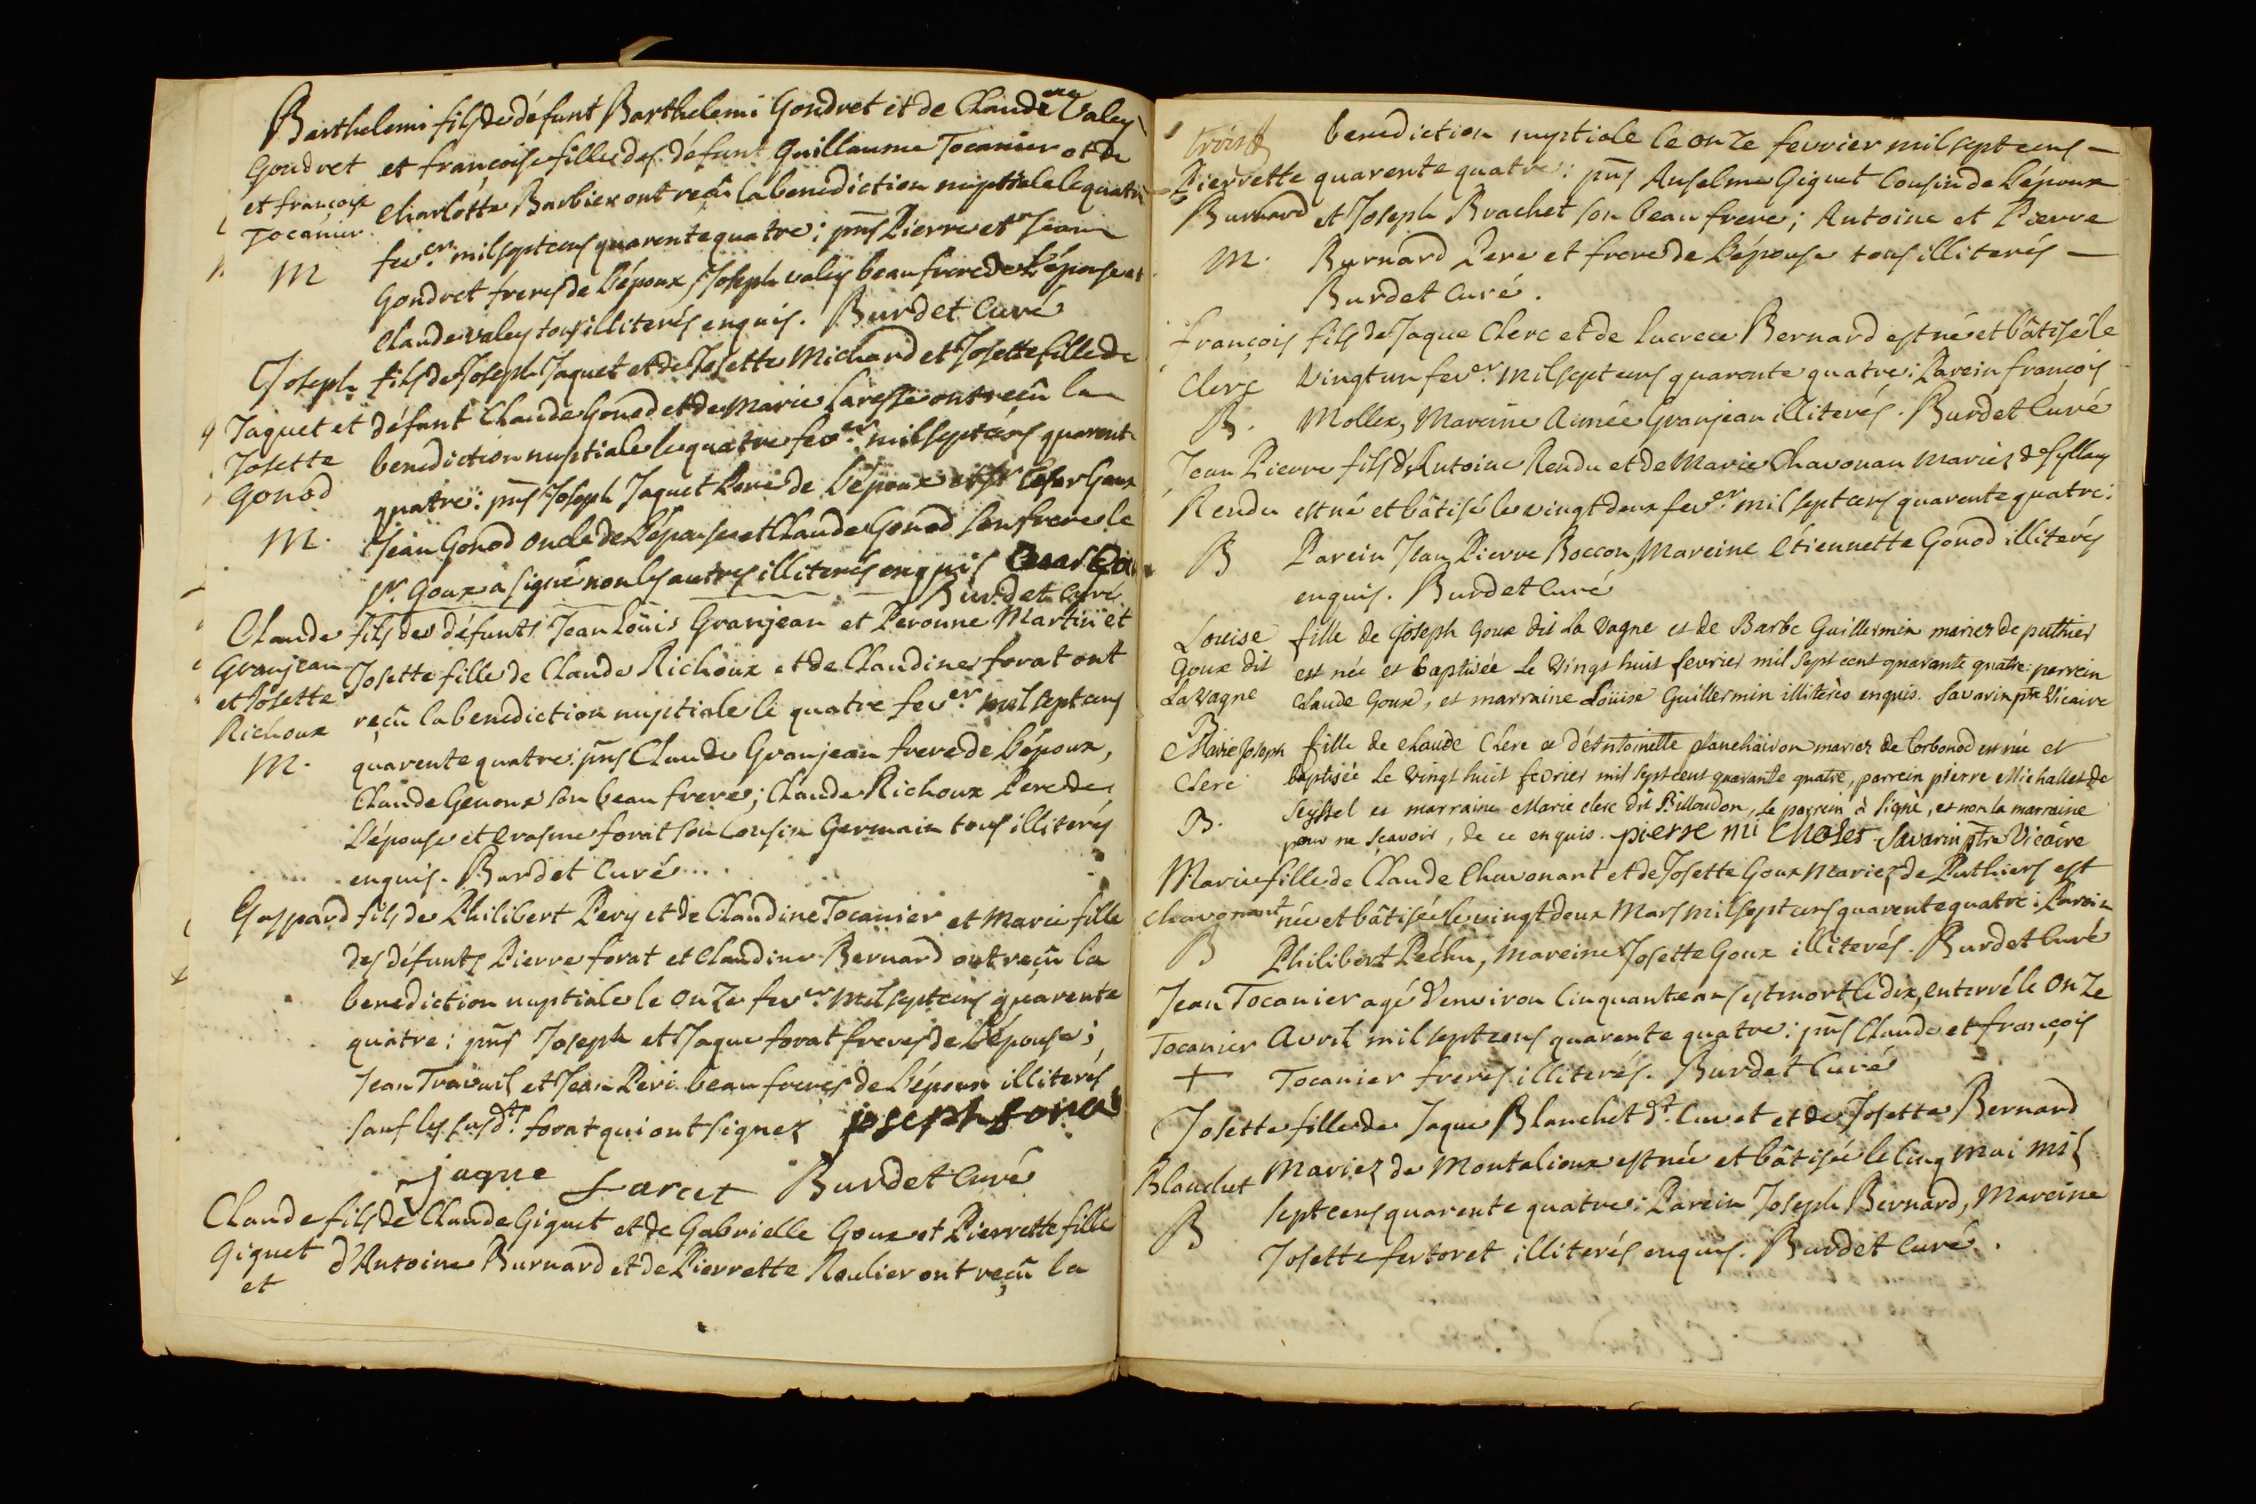 Barthelemi fils de défunt Barthelemi Gondret et de Claudine Valey
Gondret et françoise fille des défunt Guillaume Tocanier et de
et françoise Charlotte Barbier ont reçû la benediction nuptiale le quatre
Tocanier fever. mil sept cens quarente quatre ; pns Pierre et Jean
M Gondret fréres de l'époux, Joseph valey beau frere de l'épouse et
Claude valey tous illiterés enquis. Burdet Curé
Joseph fils de Joseph Jaquet et de Josette Michard et Josette fille de
Jaquet et défunt Claude Gonod et de Marie ont reçû la
Josette benediction nuptiale le quatre fever. mil sept cens quarente
Gonod quatre : pns Joseph Jaquet Pere de l'époux et Sr Cesar Goux
M. Jean Gonod oncle de l'épouse et Claude Gonod son frere le
Sr. Goux a signé non les autres illiterés enquis
Burdet Curé
Claude fils des défunts Jean Loüis Granjean et Peronne Martin et
Granjean Josette fille de Claude Richoux et de Claudine forat ont
et Josette reçû la benediction nuptiale le quatre fever. mil sept cens
Richoux quarente quatre : pns Claude Granjean frere de l'époux,
M. Claude Genoux son beau frere ; Claude Richoux Pere de
l'épouse et Erasme forat son Cousin Germain tous illiterés
enquis. Burdet Curé...
Gaspard fils de Philibert Pery et de Claudine Tocanier et Marie fille
des défunts Pierre forat et Claudine Bernard ont reçû la
benediction nuptiale le onze fever. mil sept cens quarente
quatre ; pns Joseph et Jaque forat freres de l'épouse ;
Jean Travail et Jean Peri beau freres de l'époux illiterés
sauf les susdts. forat qui ont signez joseph fora
jaque Burdet Curé
Claude fils de Claude Giguet et de Gabrielle Goux et Pierrette fille
Giguet d'Antoine Burnard et de Pierrette Roulier ont reçû la
et
benediction nuptiale le onze fevrier mil sept cens —
Pierrette quarente quatre : pns Anselme Giguet Cousin de l'époux
Burnard et Joseph Brachet son beau frere ; Antoine et Pierre
M. Burnard Pere et frere de l'épouse tous illiterés —
Burdet Curé.
françois fils de Jaque Clerc et de lucrece Bernard est né et bâtisé le
Clerc vingt un fever. mil sept cens quarente quatre : Parein françois
B. Mollex, Mareine Aimée Granjean illiterés. Burdet Curé
Jean Pierre fils d'Antoine Rendu et de Marie Chavonau mariez de Syllan
Rendu est né et bâtisé le vingt deux fever. mil sept cens quarente quatre :
B Parein Jean Pierre Boccon, Mareine Etiennette Gonod illiterés
enquis. Burdet Curé
Louise fille de Joseph Goux dit la Vagne et de Barbe Guillermin mariez de puthier
Goux dit est née et baptisée le vingt huit fevrier mil sept cent quarante quatre : parrein
La Vagne Claude Goux, et marraine Loüise Guillermin illiterés enquis. Savarin ptre Vicaire
B
Marie Joseph fille de Claude Clerc et d'Antoinette planchairon mariez de Corbonod est née et
Clerc baptisée le vingt huit fevrier mil sept cent quarante quatre, parrein pierre Michallet de
B. Seyssel et marraine Marie clerc dit Billoudon, le parrein à signé, et non la marraine
pour ne sçavoir, de ce enquis. pierre mi Chalet Savarin ptre Vicaire
Marie fille de Claude Chavonant et de Josette Goux Mariez de Puthiers est
Chavonant née et bâtisée le vingt deux Mars mil sept cens quarente quatre : Parein
B Philibert Pechu, Mareine Josette Goux illiterés. Burdet Curé
Jean Tocanier agé d'environ Cinquante ans est mort le dix, enterré le onze
Tocanier Avril mil sept cens quarente quatre : pns Claude et françois
+ Tocanier freres illiterés. Burdet Curé
Josette fille de Jaque Blanchet dt. Cuvet et de Josette Bernard
Blanchet Mariez de Montalioux est née et bâtisée le Cinq Mai mil
B sept cens quarente quatre : Parein Joseph Bernard, Mareine
Josette fertoret illiterés enquis. Burdet Curé.